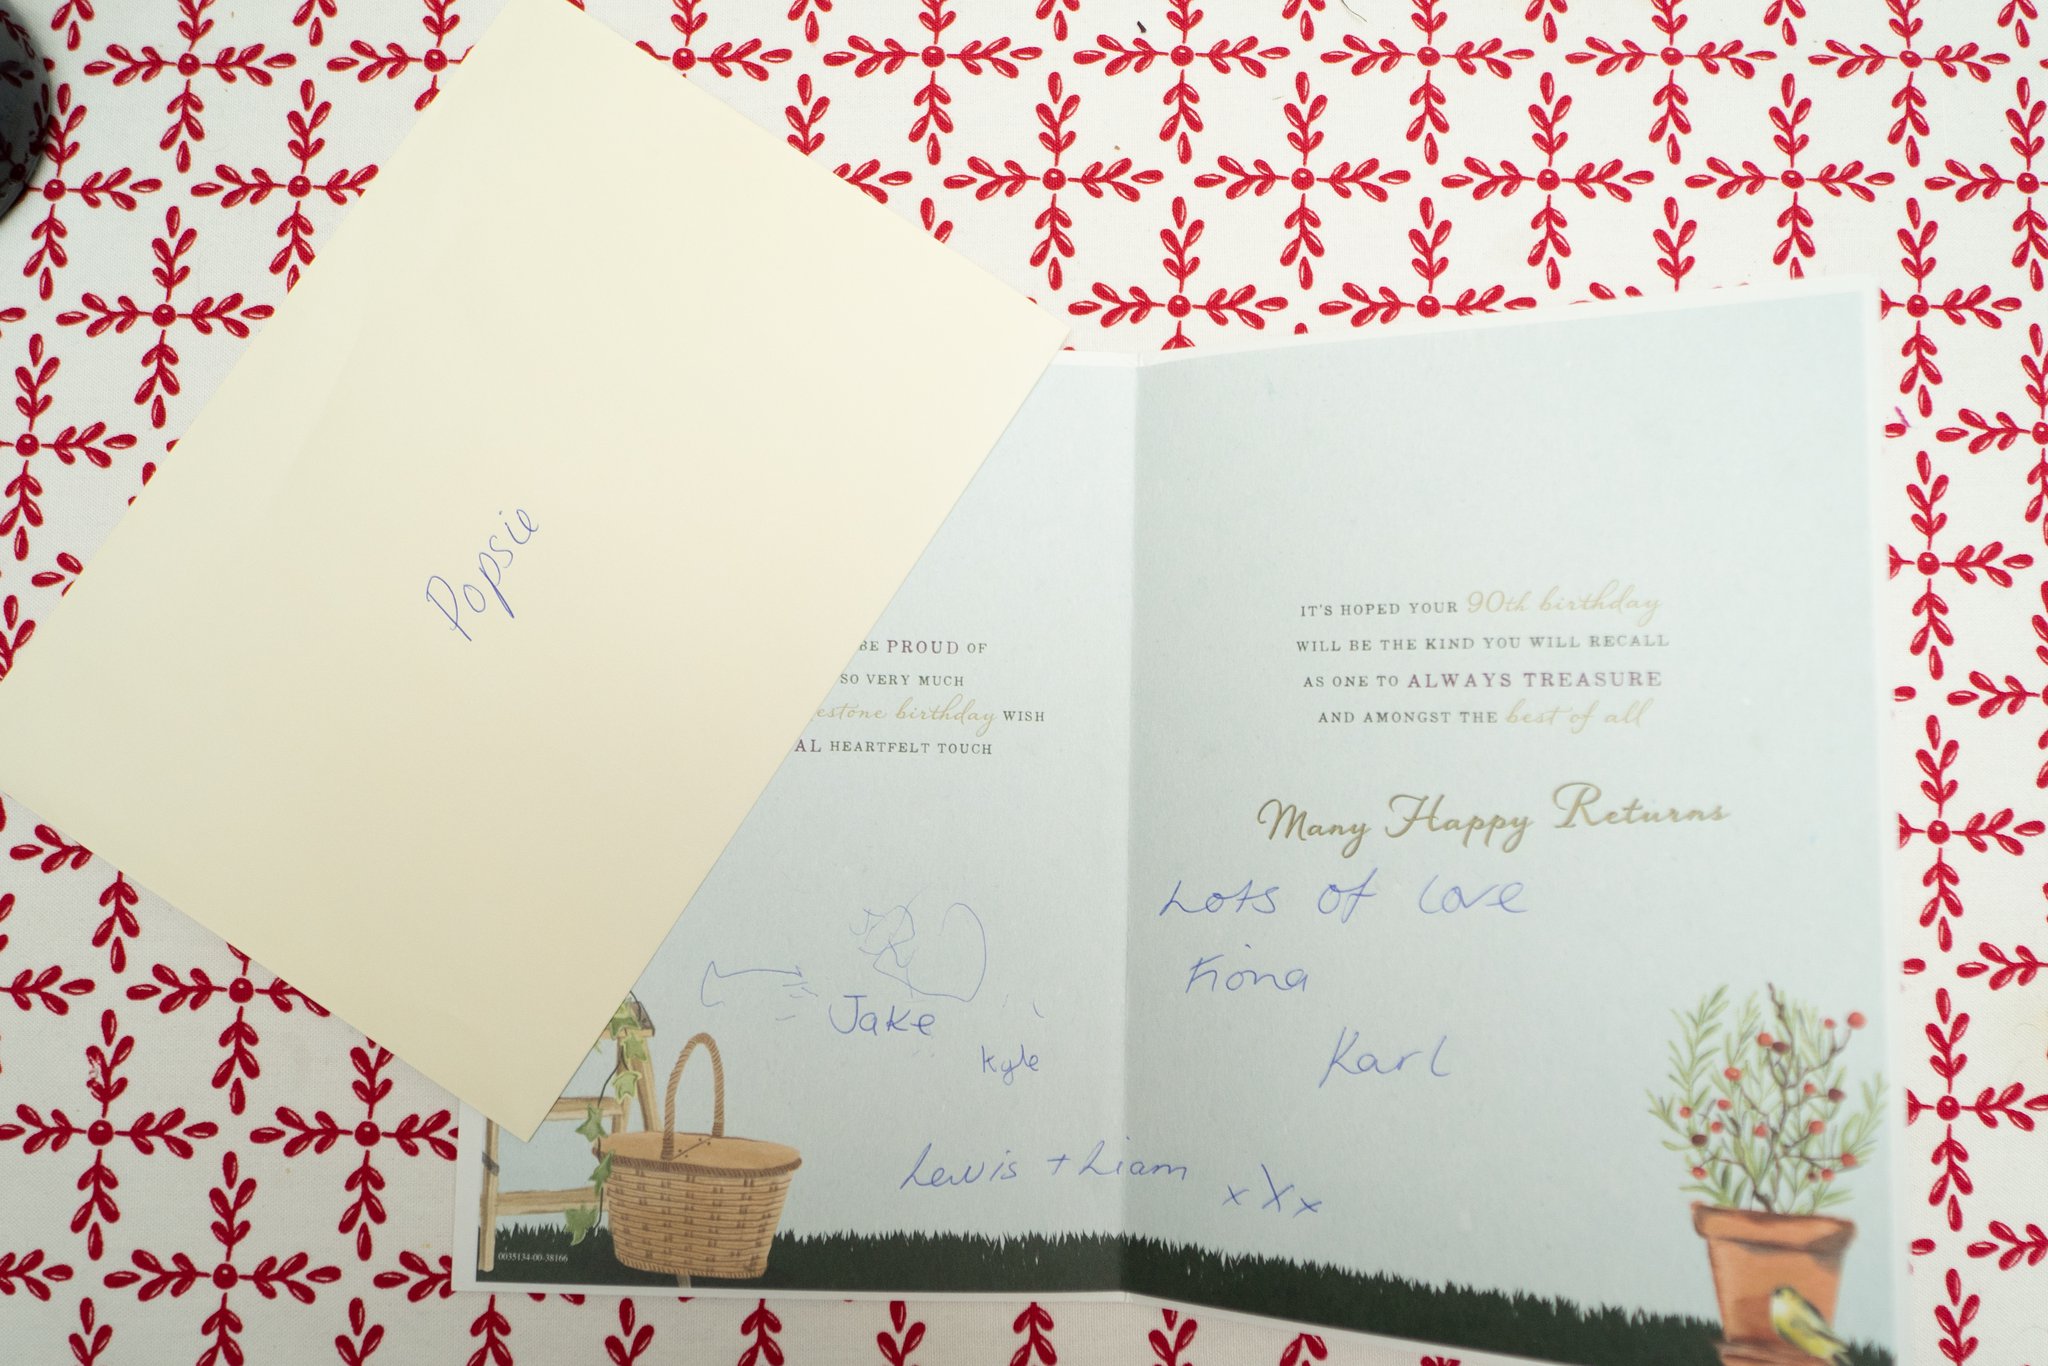 Popsie
BE PROUD OF
SO VERY MUCH
estone birthday WISH
AL HEARTFELT TOUCH
IT'S HOPED YOUR 90th birthday
WILL BE THE KIND YOU WILL RECALL
AS ONE TO ALWAYS TREASURE
AND AMONGST THE best of all
Many Happy Returns
Lots of love
Fiona
Karl
Jake
Kyle
Lewis + Liam xXx
0035134-00-38166